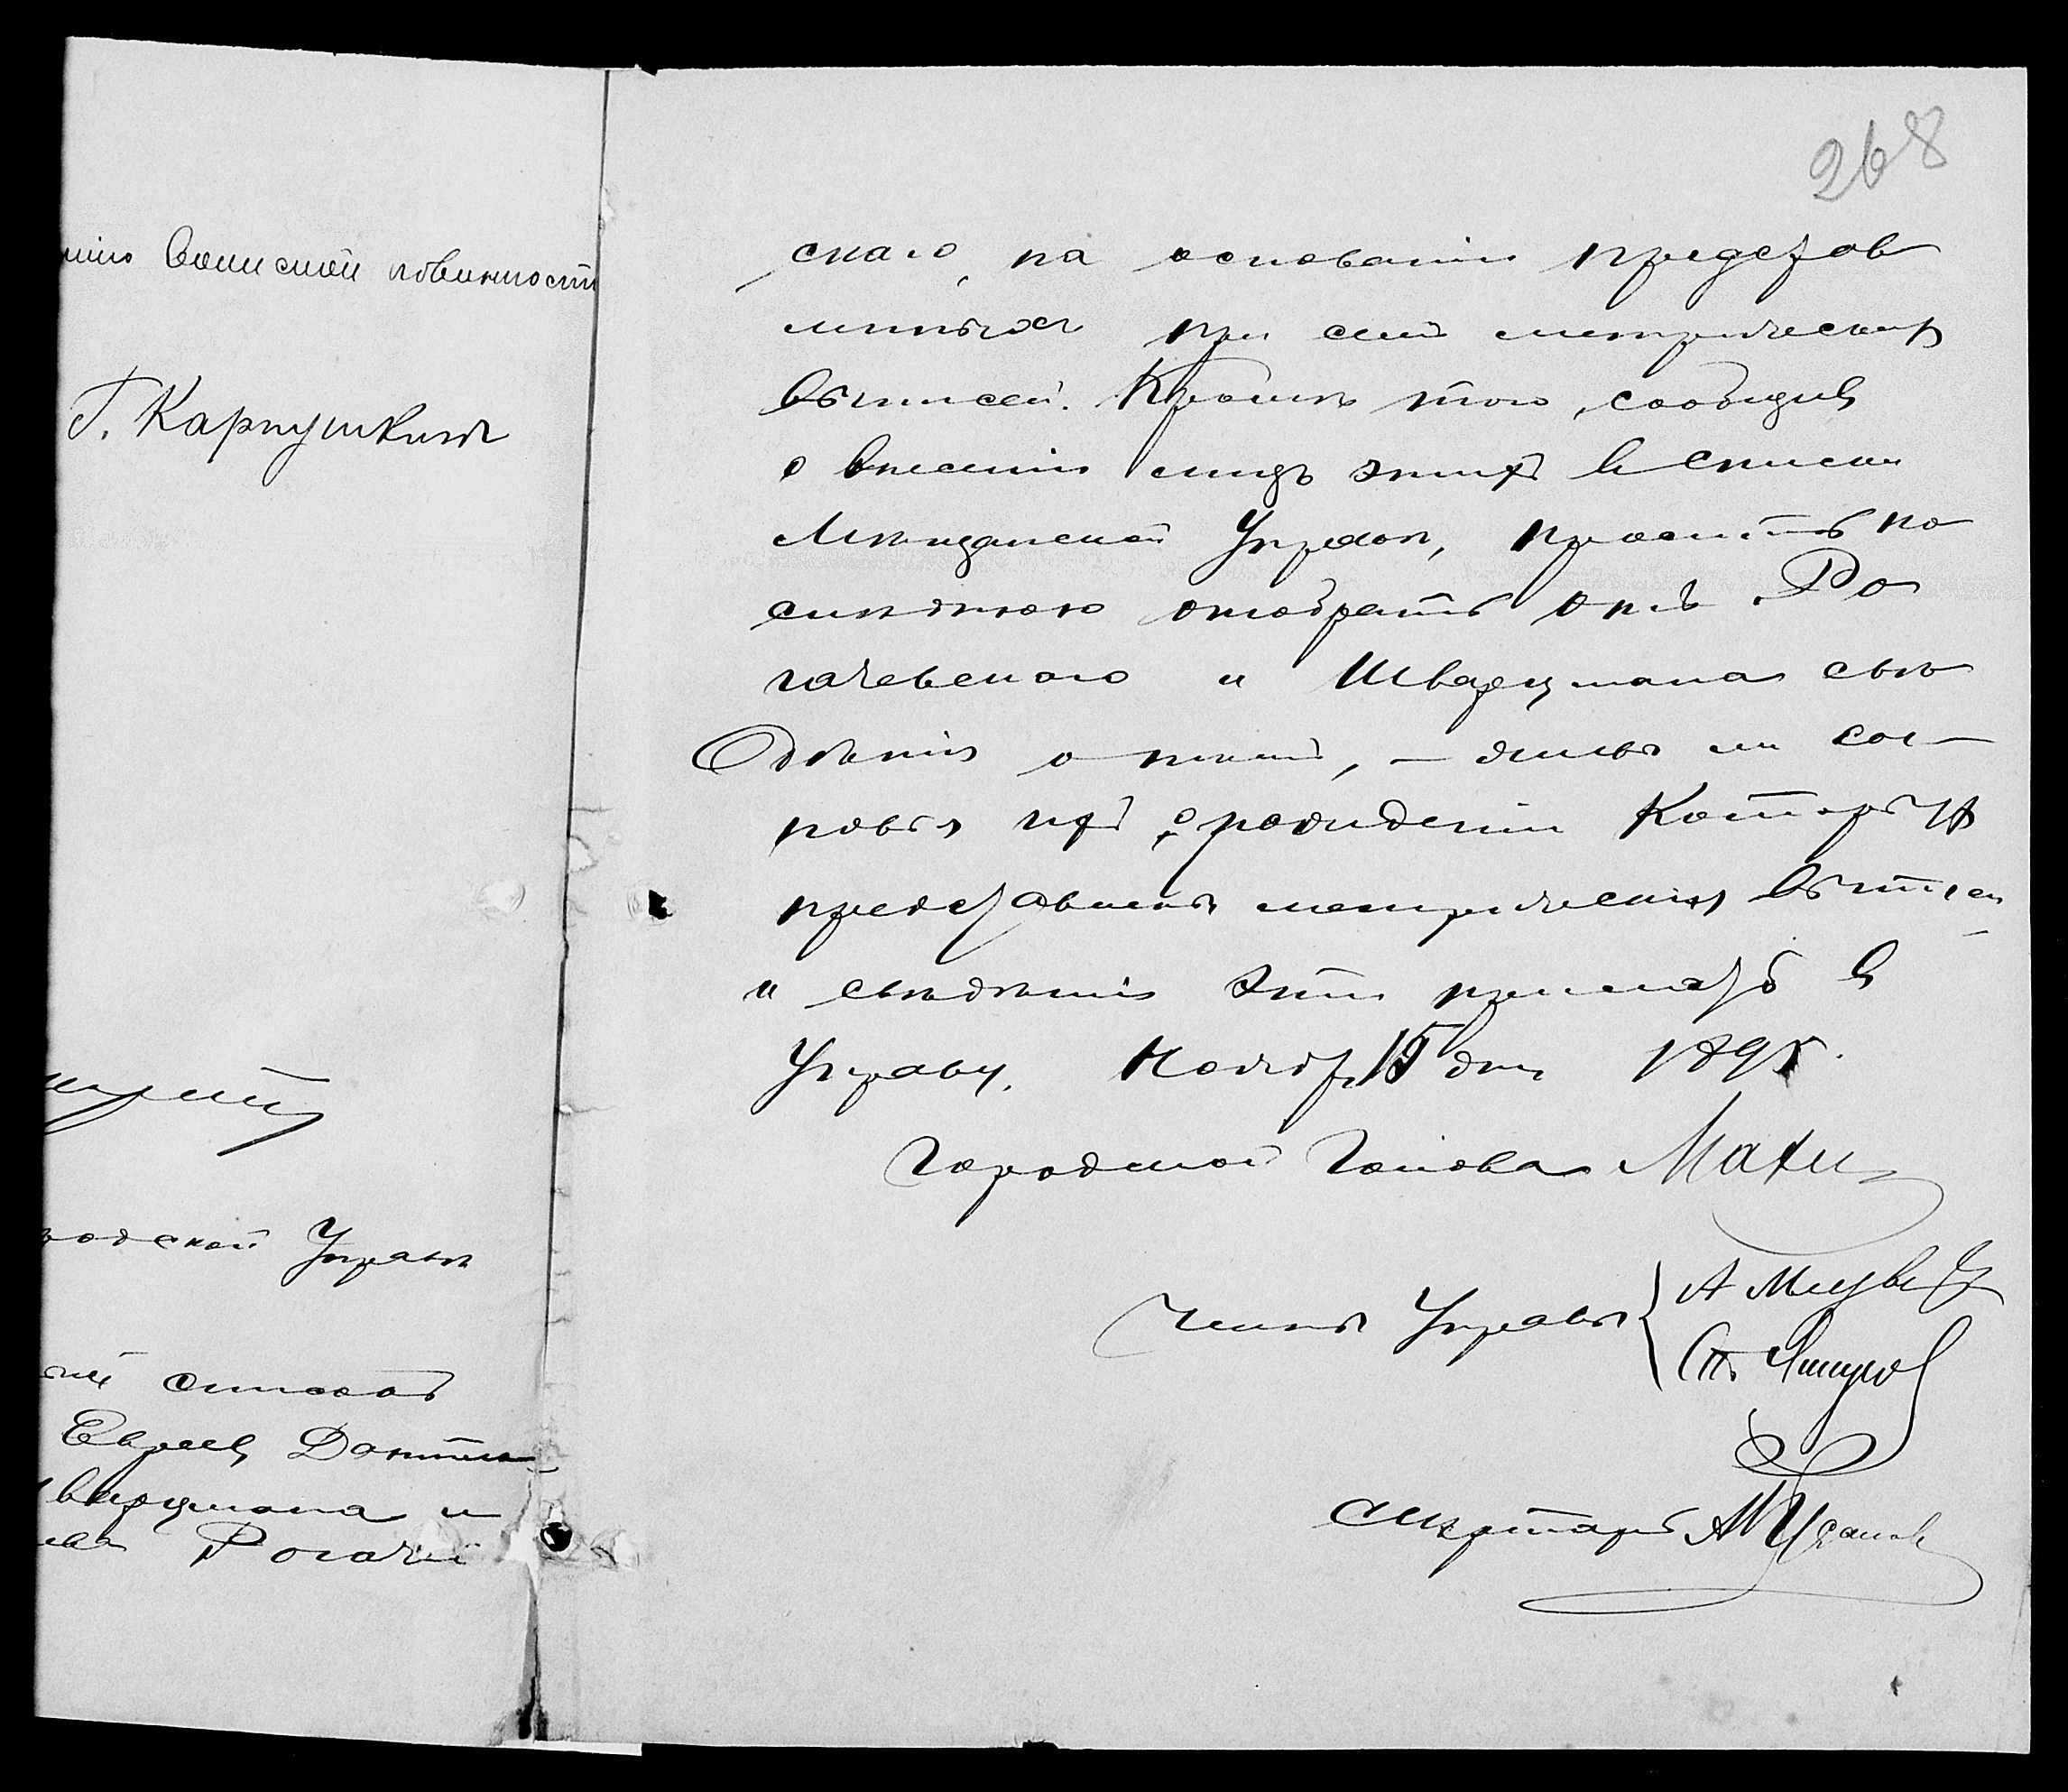 воинской повинности
Г. Карпушкинъ
одской Управѣ
списковъ
Еврей Данiила
варцмана и
Рогачев
268
скаго, на основанiи представ
ленныхъ при семъ метрическихъ
выписей. Кромѣ того, сообщивъ
о внесенiи лицъ этихъ въ списки
Мѣщанской Управѣ, просить по
слѣднюю отобрать отъ Ро
гачевскаго и Шварцмана свѣ
дѣнiя о томъ, – живы ли сы–
новья ихъ, о рожденiи которыхъ
представлены метрическiя выписи
и свѣдѣнiя эти прислать въ
Управу. Ноября 15 дня 1895.
Городской Голова
Члены Управы
Секретарь